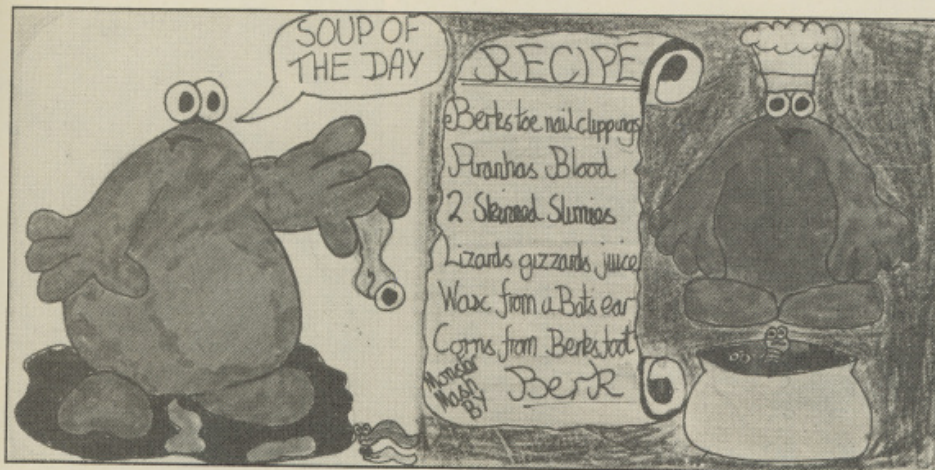 SOUP OF
THE DAY
RECIPE
Berks toe nail clippings
Piranhas Blood
2 Skinned Slimies
Lizards gizzards juice
Wax from a Bats ear
Corns from Berks foot
Monster
Mash
By
Berk